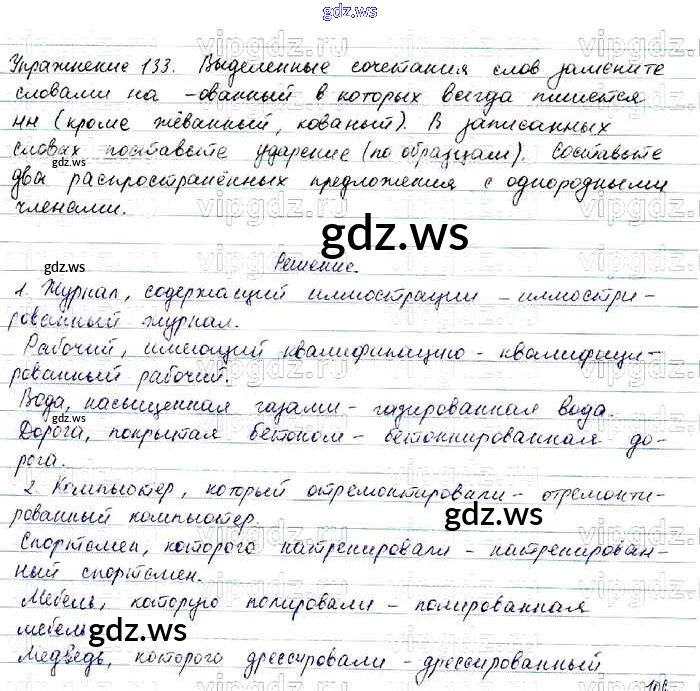 gdz.ws
Упражнение 133. Выделенные сочетания слов замените
словами на -ованный в которых всегда пишется
нн (кроме жёванный, кованый). В записанных
словах поставьте ударение (по образцам). Составьте
два распространённых предложения с однородными
членами.
gdz.ws
Решение.
1. Журнал, содержащий иллюстрации - иллюстри-
рованный журнал.
Рабочий, имеющий квалификацию - квалифици-
рованный рабочий.
Вода, насыщенная газами - газированная вода.
Дорога, покрытая бетоном - бетонированная до-
рога.
2. Компьютер, который отремонтировали - отремонти-
рованный компьютер.
Спортсмен, которого натренировали - натренирован-
ный спортсмен.
Мебель, которую полировали - полированная
мебель
Медведь, которого дрессировали - дрессированный
gdz.ws
gdz.ws
gdz.ws
gdz.ws
vipgdz.ru